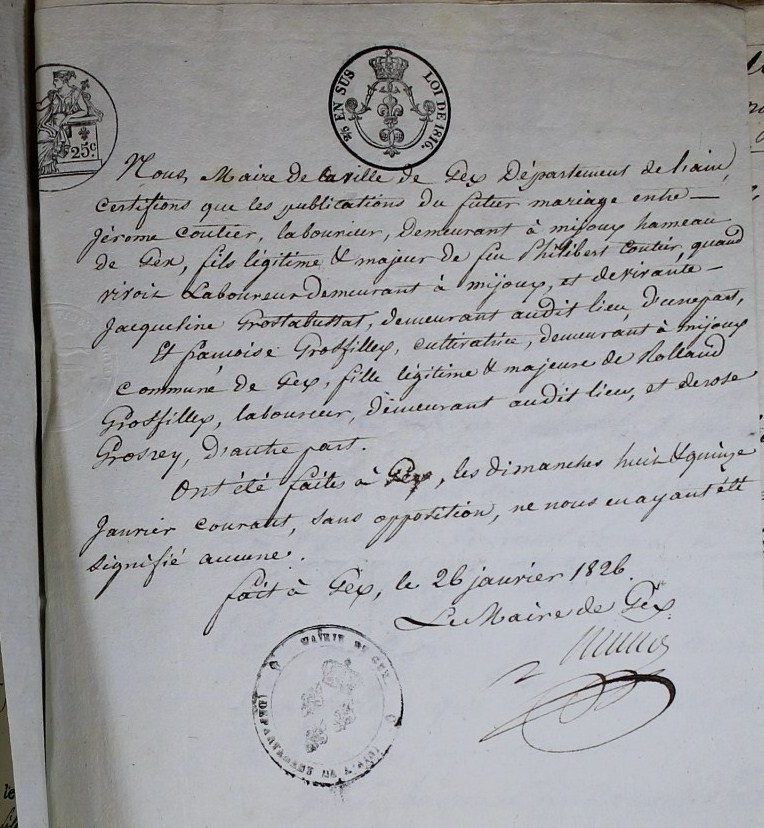 EN SUS
LOI DE 1816.
25.c
Nous, Maire de la ville de Gex Département de l'ain,
certifions que les publications du futur mariage entre —
Jérome Coutier, laboureur, demeurant à mijoux hameau
de Gex, fils légitime & majeur de feu Philibert Coutier, quand
vivoit Laboureur demeurant à mijoux, et de vivante —
Jacqueline demeurant audit lieu, d'une part,
Et françoise Grosfillex, cultivatrice, demeurant à mijoux
commune de Gex, fille légitime & majeure de Rolland
Grosfillex, laboureur, demeurant audit lieu, et de rose
Grosrey, d'autre part.
Ont été faites à Gex, les dimanches huit & quinze
Janvier courant, sans opposition, ne nous en ayant été
signifié aucune.
fait à Gex, le 26 janvier 1826.
Le Maire de Gex
MAIRIE DE GEX
DÉPARTEMENT DE L'AIN